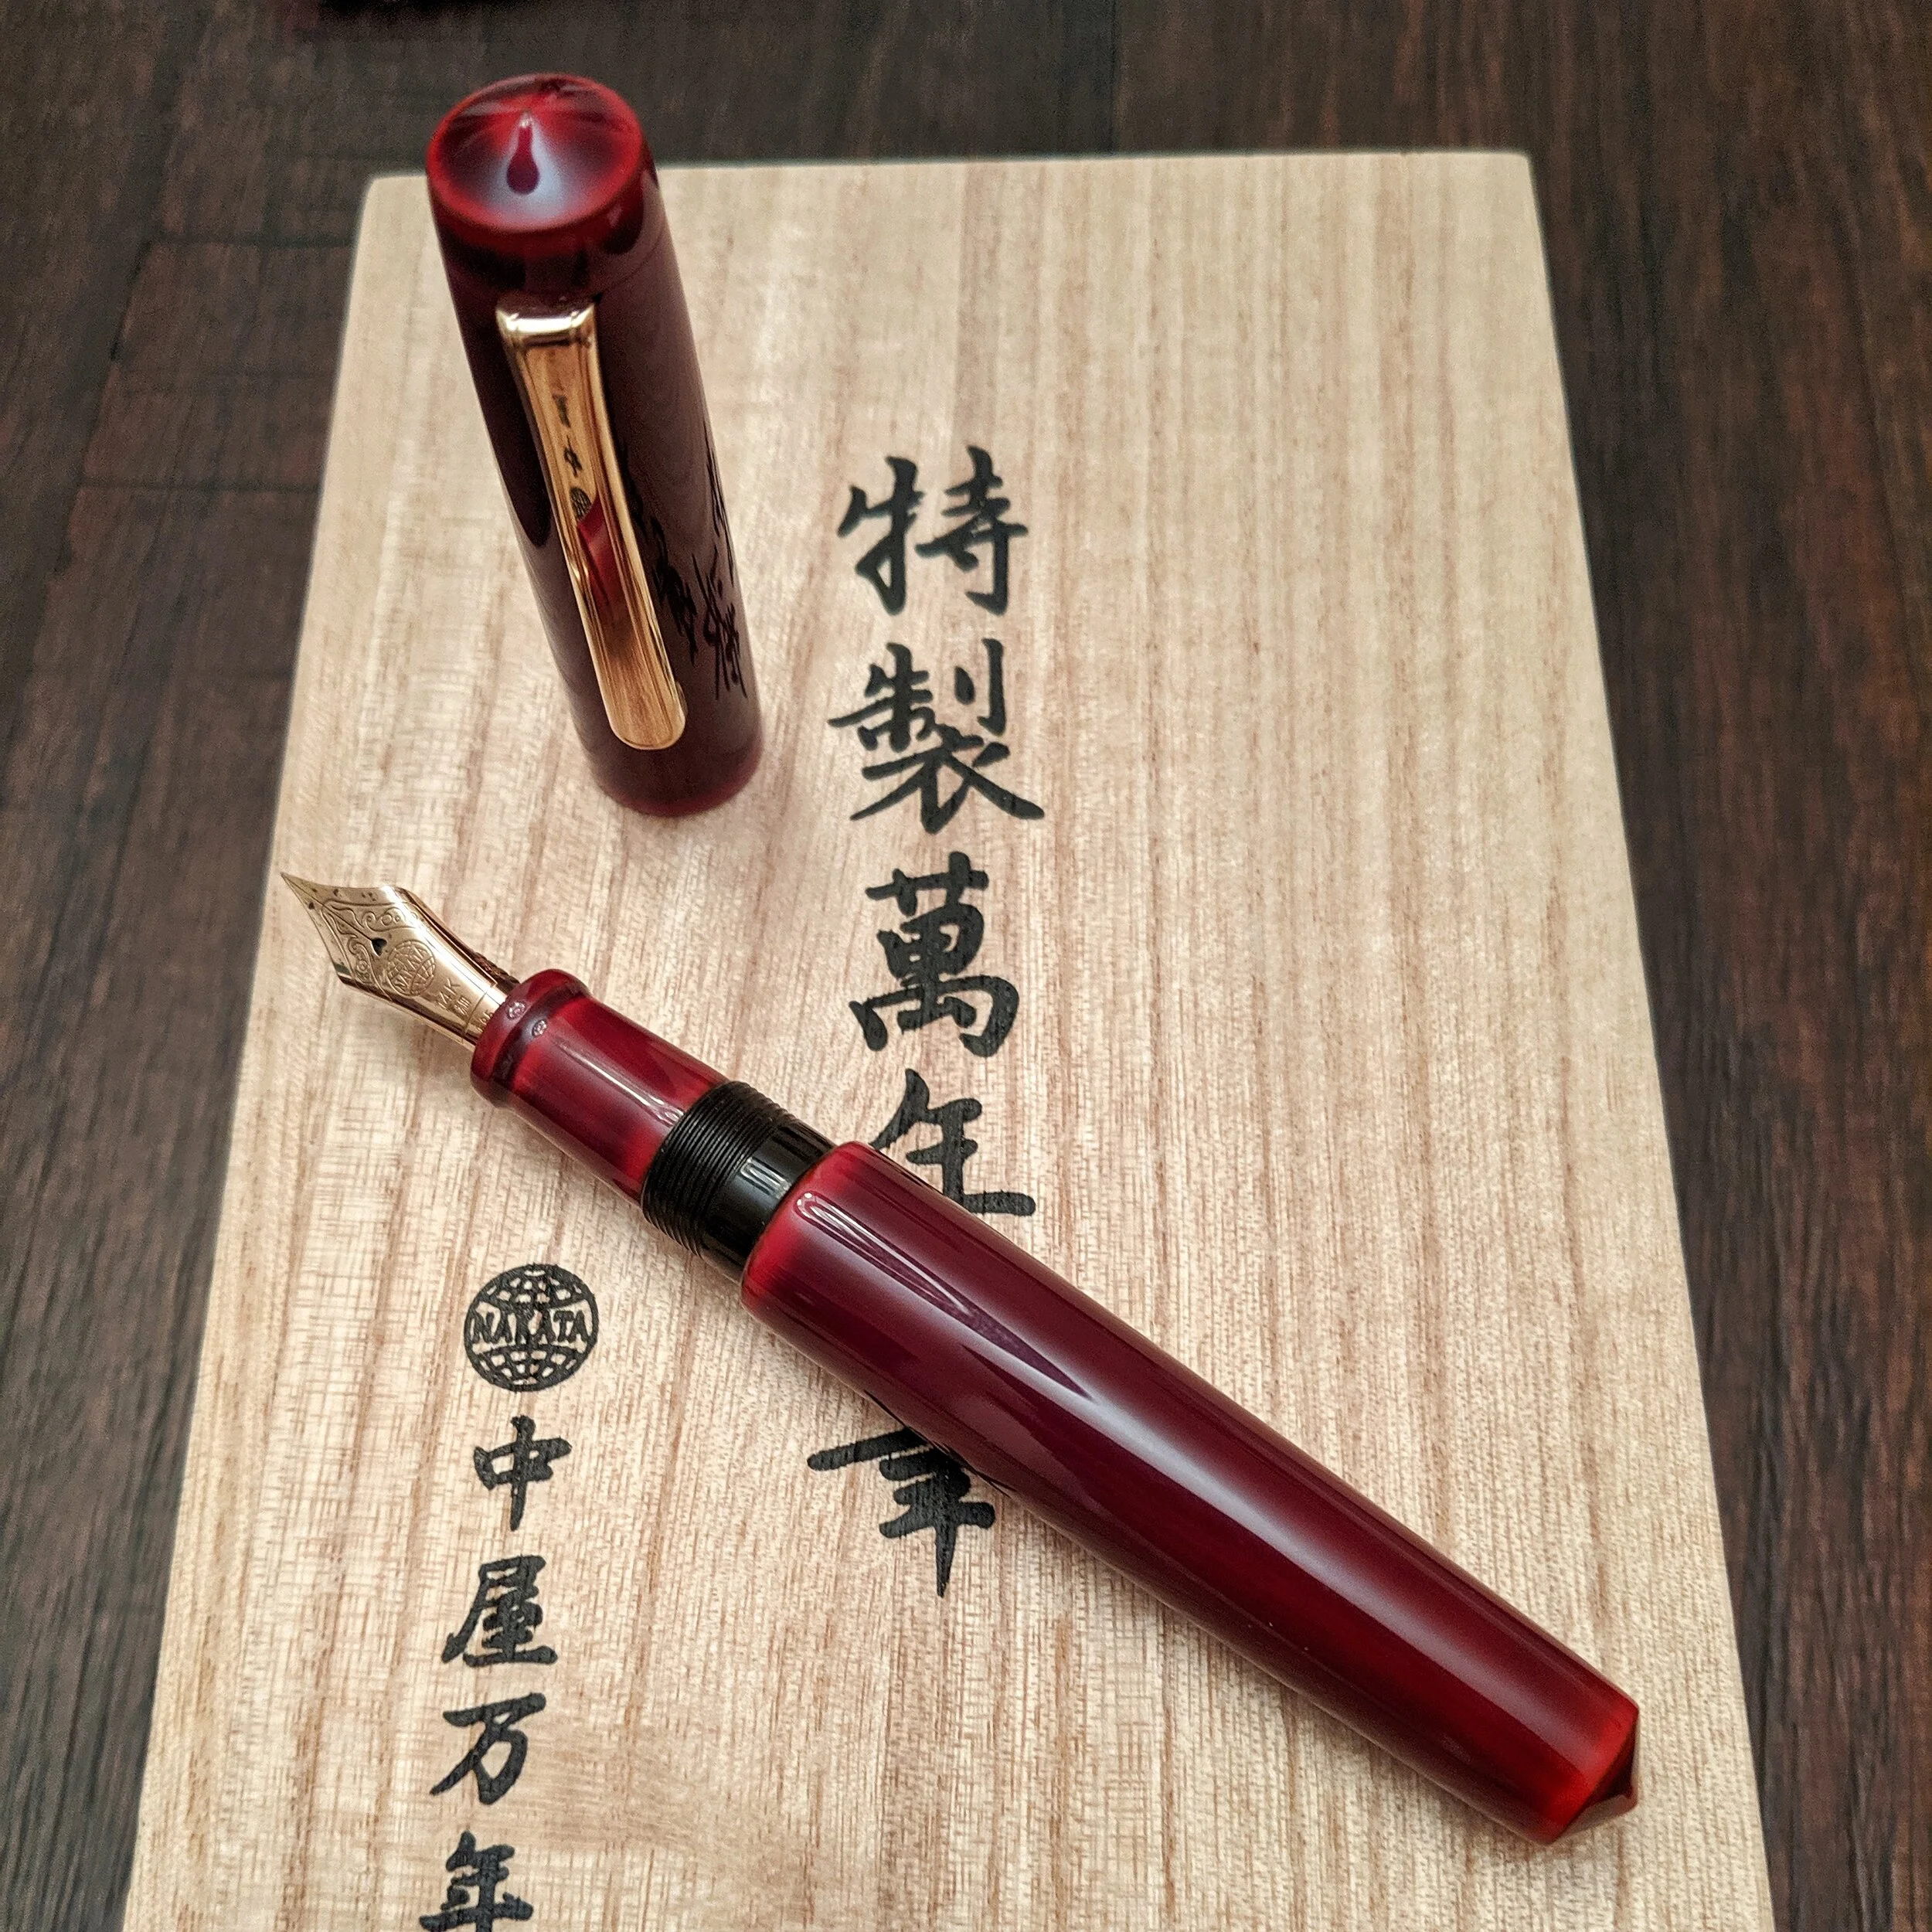 特製萬年筆
NAKAYA
中屋万年